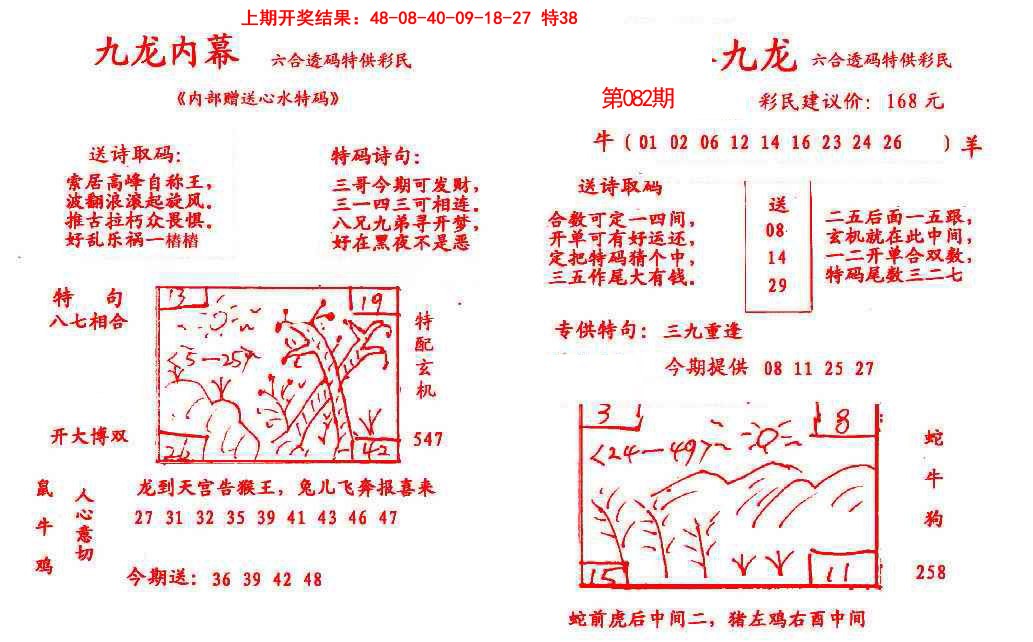 上期开奖结果：48-08-40-09-18-27 特38
九龙内幕 六合透码特供彩民
《内部赠送心水特码》
送诗取码：
索居高峰自称王，
波翻浪滚起旋风。
推古拉朽众畏惧。
好乱乐祸一楮楮
特码诗句：
三哥今期可发财，
三一四三可相连。
八兄九弟寻开梦，
好在黑夜不是恶
特 句
八七相合
开大博双
13
19
〈5—25〉
26
42
特配玄机
547
鼠牛鸡
人心意切
龙到天宫告猴王，兔儿飞奔报喜来
27 31 32 35 39 41 43 46 47
今期送：36 39 42 48
九龙 六合透码特供彩民
第082期 彩民建议价：168元
牛（01 02 06 12 14 16 23 24 26 ）羊
送诗取码
合数可定一四间，
开单可有好运还，
定把特码猜个中，
三五作尾大有钱．
送
08
14
29
二五后面一五跟，
玄机就在此中间，
一二开单合双数，
特码尾数三二七
专供特句：三九重逢
今期提供 08 11 25 27
3
8
〈24—49〉
15
11
蛇牛狗
258
蛇前虎后中间二，猪左鸡右酉中间